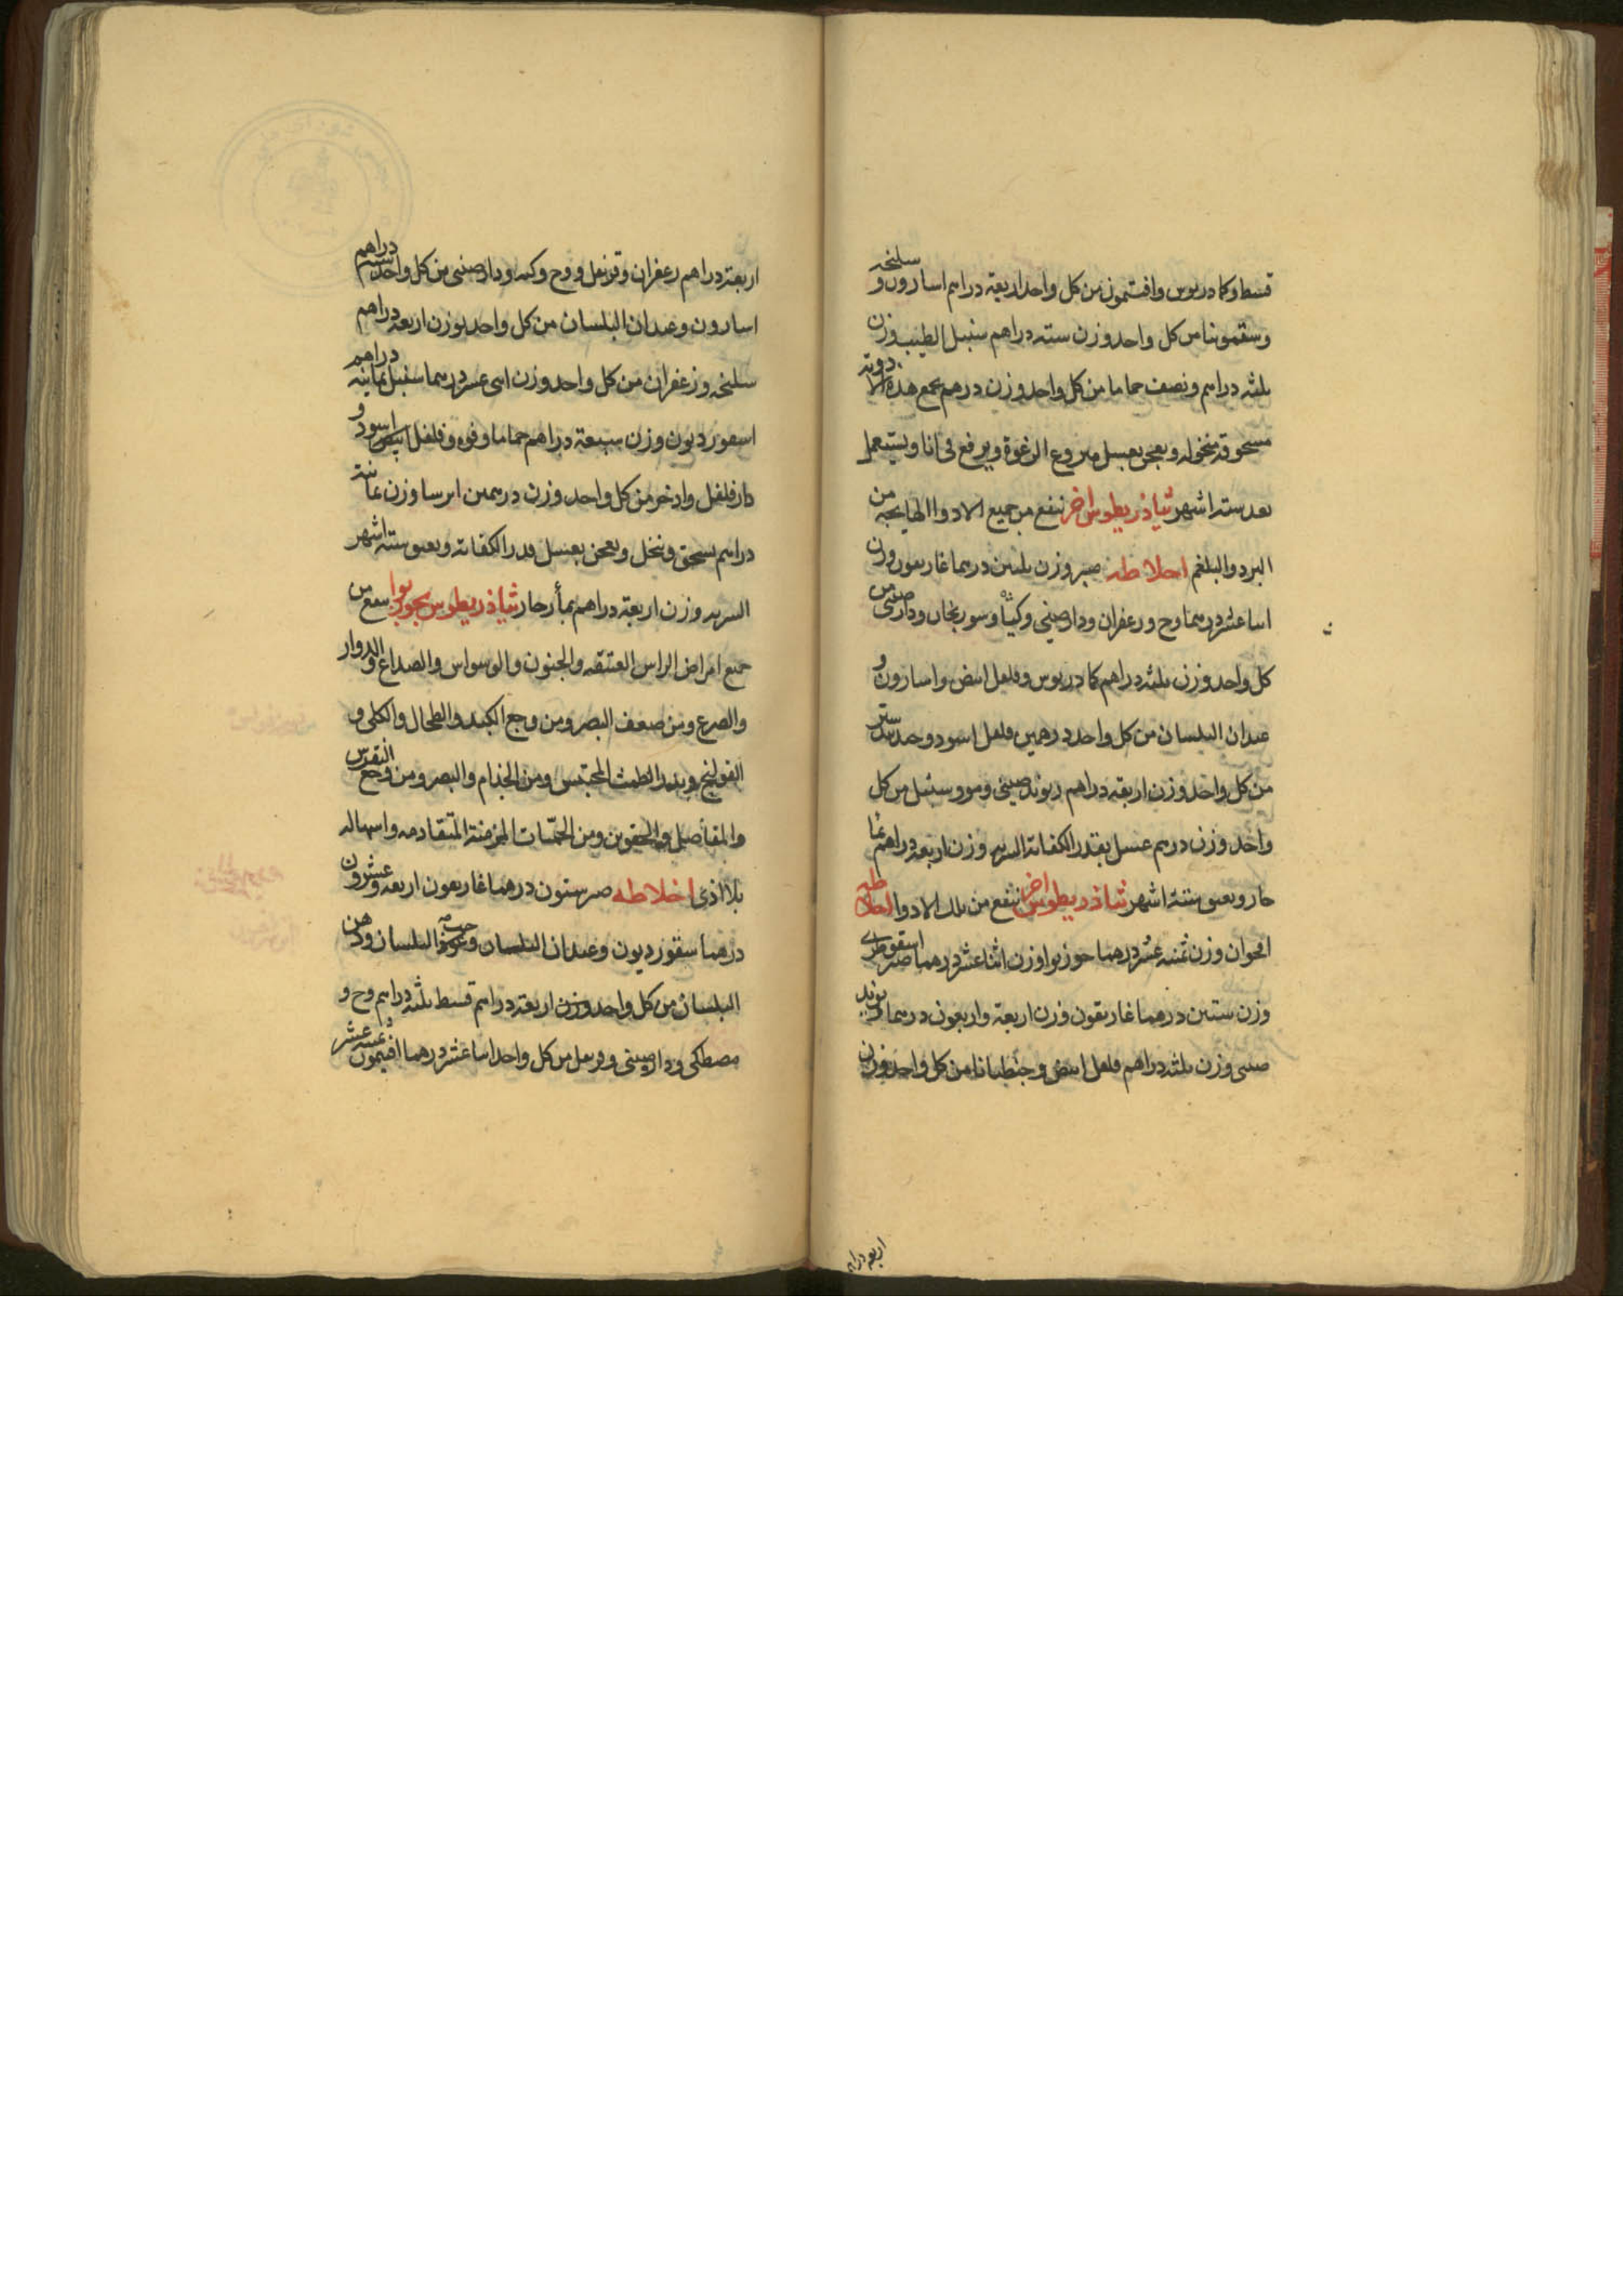 قسط وكمادريوس وافتيمون من كل واحد اربعة دراهم اسارون و سليخه
وسقمونيا من كل واحد وزن ستة دراهم سنبل الطيب وزن
ثلثه دراهم ونصف حماما من كل واحد وزن درهم يجمع هذه الادوية
مسحوقه منخوله ويعجن بعسل منزوع الرغوة ويرفع فى انا ويستعمل
بعد ستة اشهر ثياذريطوس اخر ينفع من جميع الادوا الهايجه من
البرد والبلغم اخلاطه صبر وزن ثلثين درهما غاريقون وزن
اثنا عشر درهما وج وزعفران ودارصينى وكيا وسورنجان من
كل واحد وزن ثلثه دراهم كمادريوس وفلفل ابيض واسارون و
عيدان البلسان من كل واحد درهمين فلفل اسود وجندبيدستر
من كل واحد وزن اربعة دراهم ريوند صينى ومو وسنبل من كل
واحد وزن درهم عسل بقدر الكفاية الشربه وزن اربعة دراهم بما
حار ويعتق ستة اشهر ثياذريطوس اخر ينفع من تلك الادوا اخلاطه
اقحوان وزن ثمنيه عشر درهما جوزبوا وزن اثنا عشر درهما صبر اسقوطرى
وزن ستين درهما غاريقون وزن اربعة واربعون درهما ريوند
صينى وزن ثلثه دراهم فلفل ابيض وجنطيانا من كل واحد وزن
اربعه دراهم
اربعة دراهم زعفران وقرنفل ووج وكيه ودارصينى من كل واحد ستة دراهم
اسارون وعيدان البلسان من كل واحد بوزن اربعة دراهم
سليخه وزعفران من كل واحد وزن اثنى عشر درهما سنبل ثمانيه دراهم
اسقورديون وزن سبعة دراهم حماما وفوه وفلفل ابيض واسود و
دارفلفل واذخر من كل واحد وزن درهمين ايرسا وزن ثمانية
دراهم يسحق وينخل ويعجن بعسل قدر الكفاية ويعتق ستة اشهر
الشربه وزن اربعة دراهم بمأ حار ثياذريطوس بجوزبوا ينفع من
جميع امراض الراس العتيقه والجنون والوسواس والصداع والدوار
والصرع ومن ضعف البصر ومن وجع الكبد والطحال والكلى و
القولنج ويدر الطمث المحتبس ومن الجذام والبصر ومن وجع النقرس
والمفاصل والحقوين ومن الحميّات المزمنة المتقادمه واسهاله
بلا اذى اخلاطه صبر ستون درهما غاريقون اربعه وعشرون
درهما سقورديون وعيدان البلسان وحبّه البلسان ودهن
البلسان من كل واحد وزن اربعة دراهم قسط ثلثه دراهم وج و
مصطكى ودارصينى من كل واحد اثنا عشر درهما افتيمون خمسه عشر